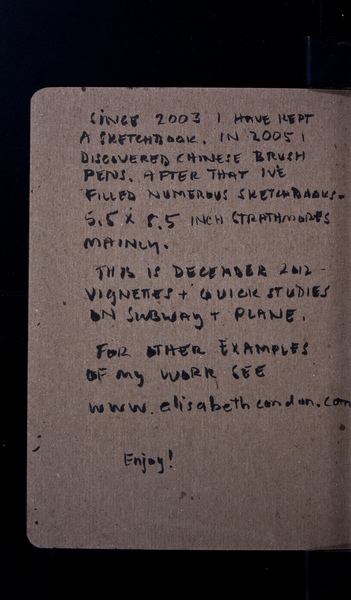 SINCE 2003 I HAVE KEPT
A SKETCHBOOK. IN 2005 I
DISCOVERED CHINESE BRUSH
PENS. AFTER THAT I'VE
FILLED NUMEROUS SKETCHBOOKS-
5.5 X 8.5 INCH STRATHMORES
MAINLY.
THIS IS DECEMBER 2012-
VIGNETTES + QUICK STUDIES
ON SUBWAY + PLANE.
FOR OTHER EXAMPLES
OF MY WORK SEE
www.elisabethcondon.com
Enjoy!